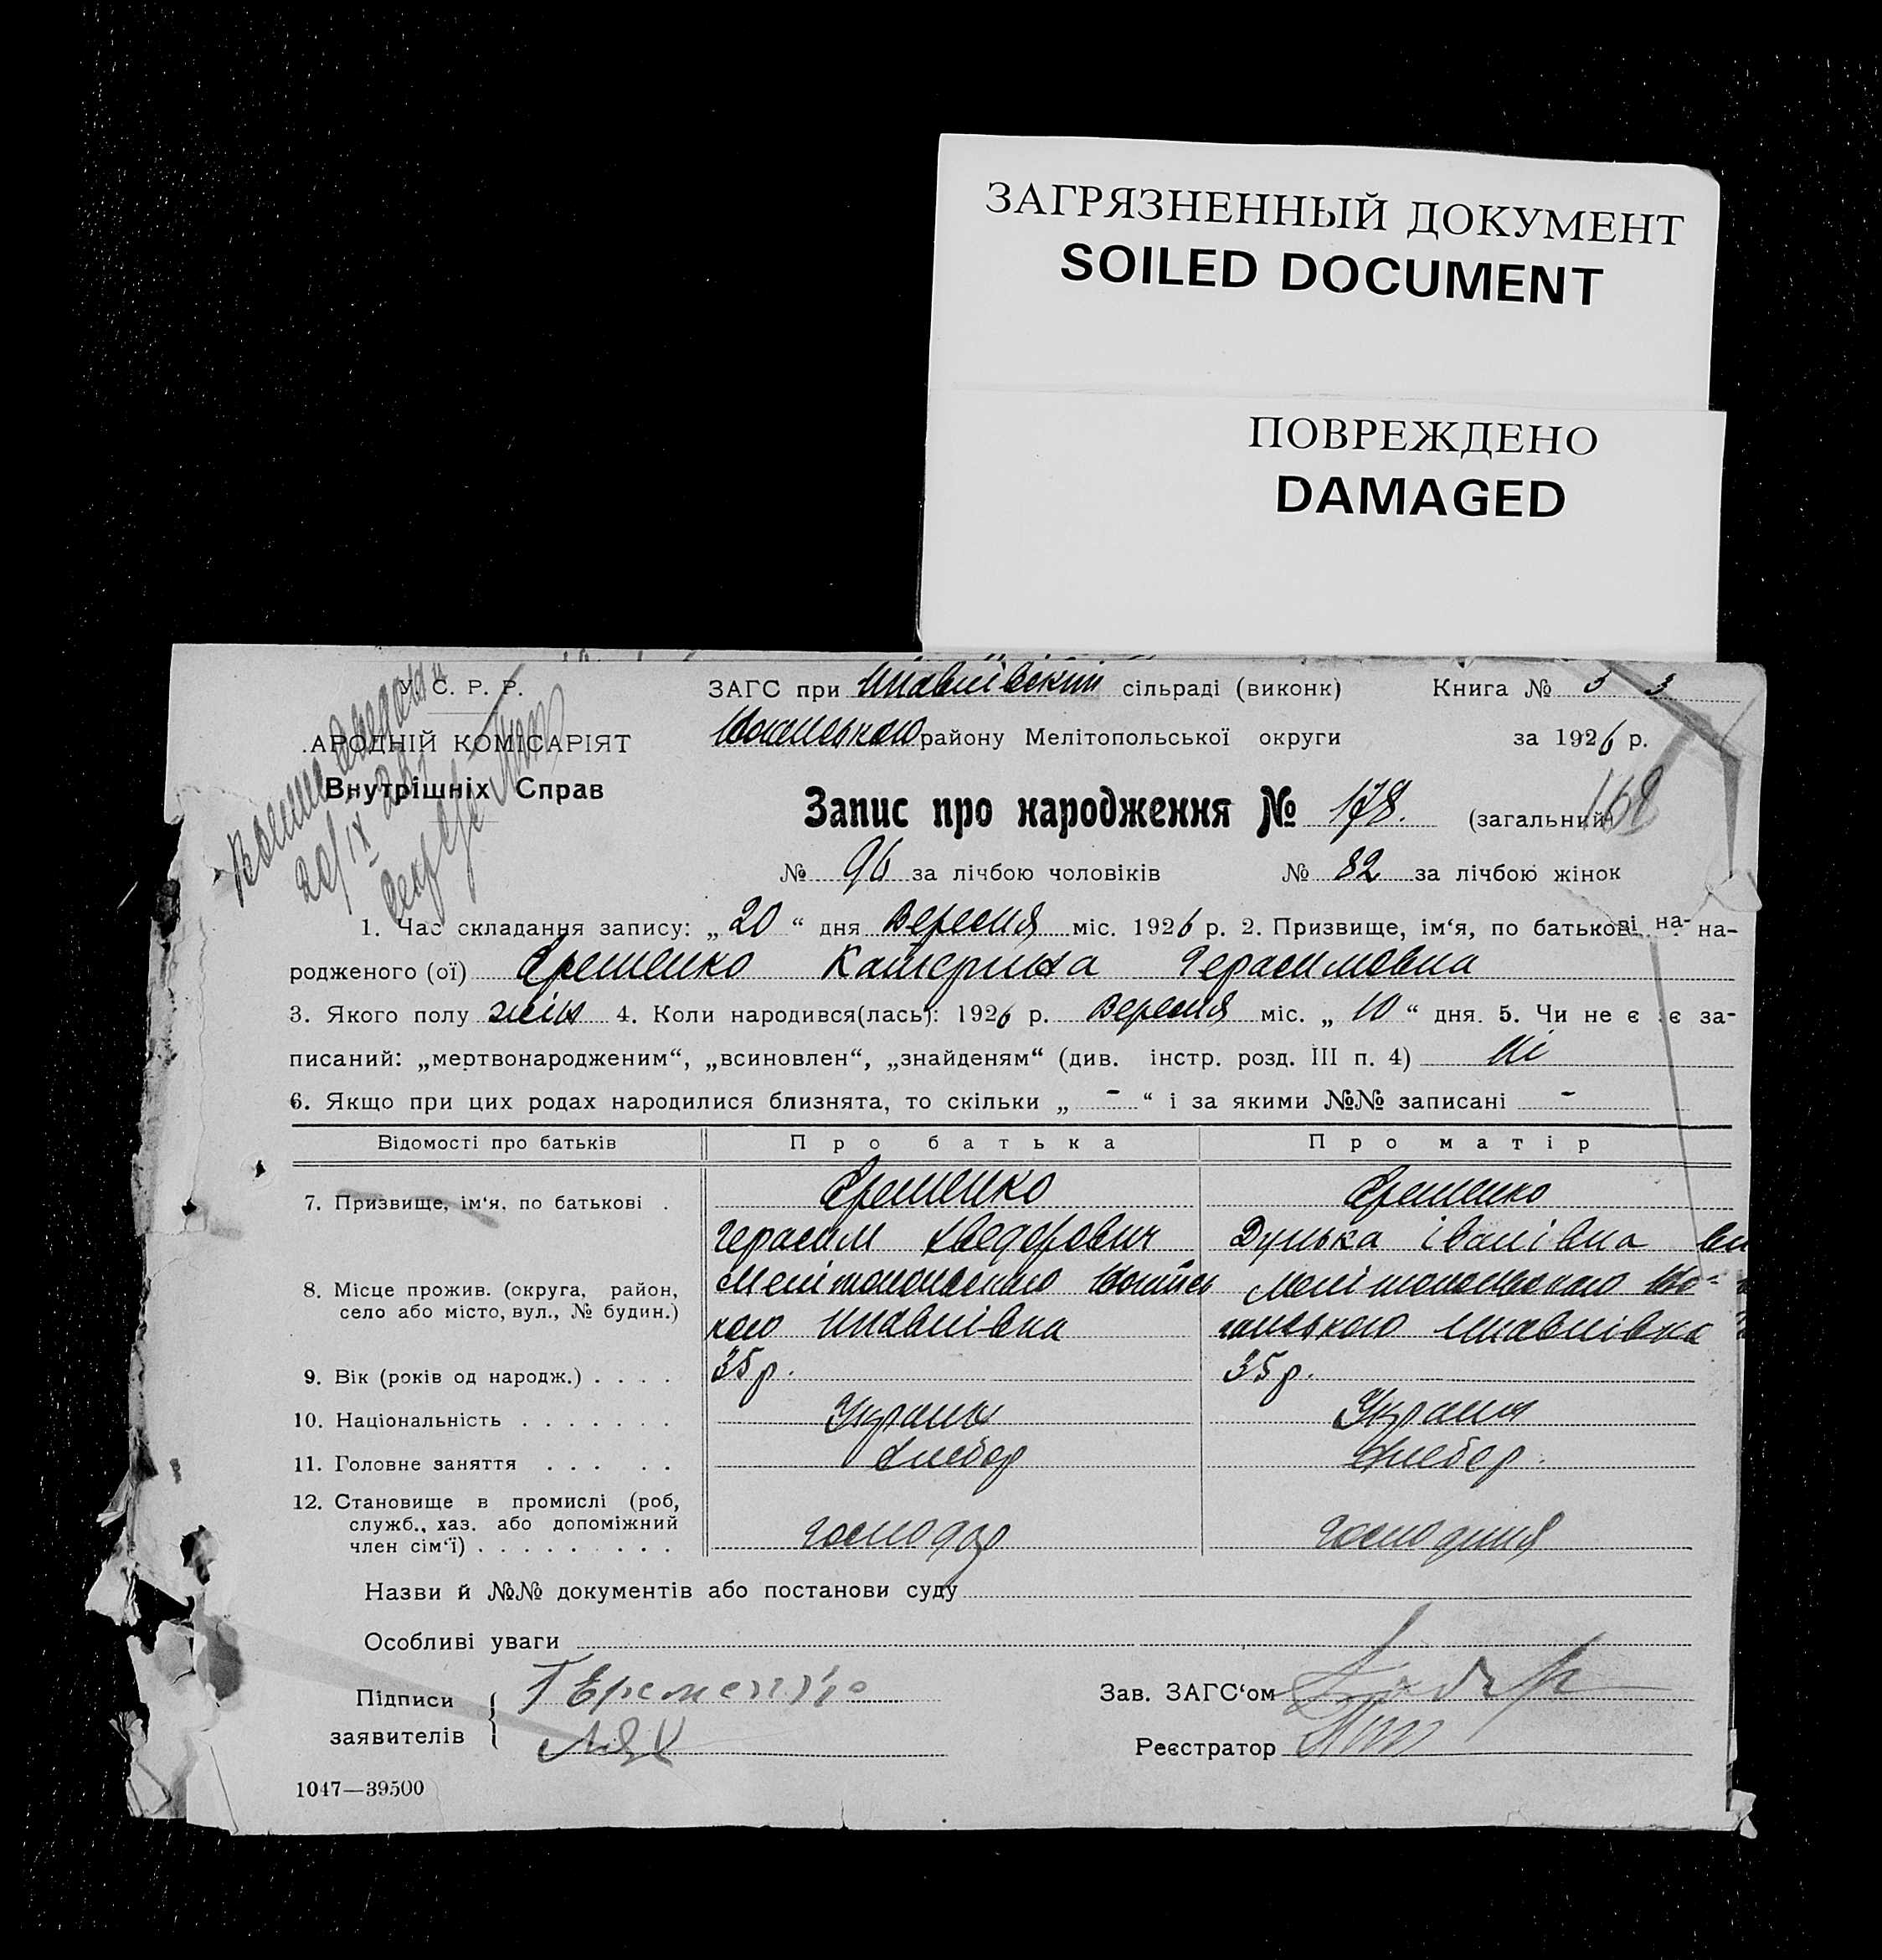 ЗАГРЯЗНЕННЫЙ ДОКУМЕНТ
SOILED DOCUMENT
ПОВРЕЖДЕНО
DAMAGED
У. С. Р. Р.
АРОДНІЙ КОМІСАРІЯТ
Внутрішніх Справ
20/IX
ЗАГС при сільраді (виконк) Книга № 3 3
району Мелітопольської округи за 1926 р.
Запис про народження № 178. (загальний) 168
№ 96 за лічбою чоловіків № 82 за лічбою жінок
1. Час складання запису: „ 20 “ дня Вересня міс. 1926 р. 2. Призвище, ім‘я, по батькові на- на-
родженого (ої) Єременко Катерина Герасимовна
3. Якого полу жін 4. Коли народився(лась): 1926 р. Вересня міс. „ 10 “ дня. 5. Чи не є є за-
писаний: „мертвонародженим“, „всиновлен“, „знайденям“ (див. інстр. розд. III п. 4) Ні
6. Якщо при цих родах народилися близнята, то скільки „ - “ і за якими №№ записані -
Відомості про батьків Про батька Про матір
7. Призвище, ім‘я, по батькові . Єременко Єременко
Герасим Хведорович Дунька Іванівна
8. Місце прожив. (округа, район, село або місто, вул., № будин.)
Мелітопольського Мелітопольського
9. Вік (років од народж.) . . . . 35 р. 35 р.
10. Національність . . . . . . . Украин Украин
11. Головне заняття . . . . . Хлебор Хлебор.
12. Становище в промислі (роб, служб., хаз. або допоміжний член сім‘ї) . . . . . . . . . господар господиня
Назви й №№ документів або постанови суду
Особливі уваги
Підписи заявителів { Г Еременко
Лях
Зав. ЗАГС‘ом
Реєстратор
1047—39500